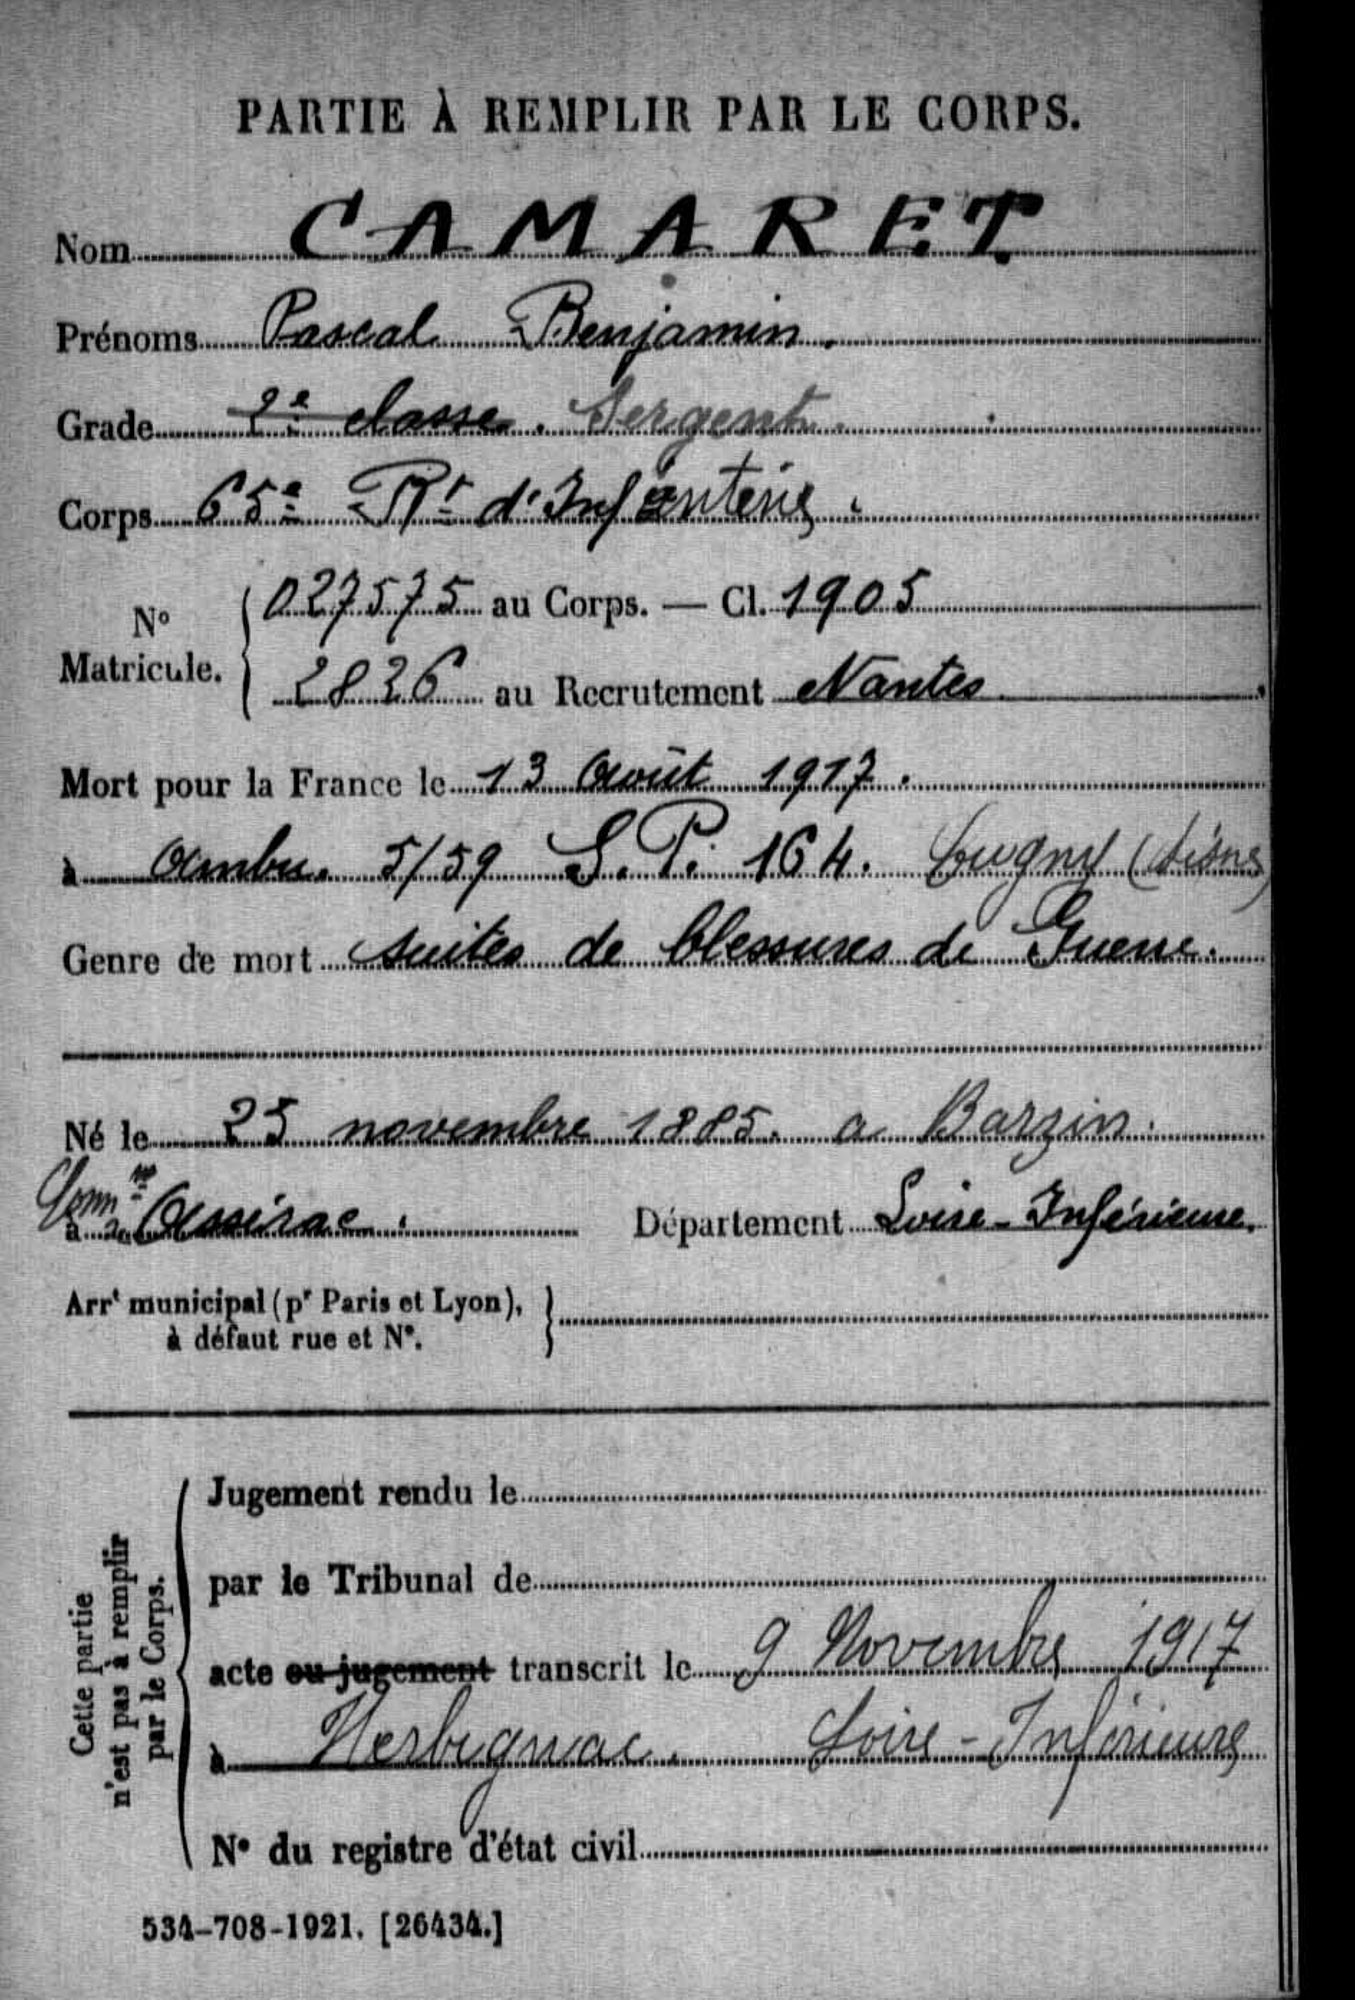 PARTIE À REMPLIR PAR LE CORPS.
Nom CAMARET.
Prénoms Pascal Benjamin.
Grade 2e classe. Sergent.
Corps 65e Rt d'Infanterie.
No Matricule. { 027575 au Corps. — Cl. 1905
2826 au Recrutement Nantes
Mort pour la France le 13 Août 1917.
à Ambu. 5/59 S.P. 164. (Aisne)
Genre de mort suites de blessures de Guerre.
Né le 25 novembre 1885. a Barzin.
Comne
à de Assérac. Département Loire-Inférieure.
Arrt municipal (pr Paris et Lyon),
à défaut rue et No. }
Cette partie
n'est pas à remplir
par le Corps.
Jugement rendu le
par le Tribunal de
acte ou jugement transcrit le 9 Novembre 1917
à Herbignac. Loire-Inférieure
No du registre d'état civil
534-708-1921. [26434.]